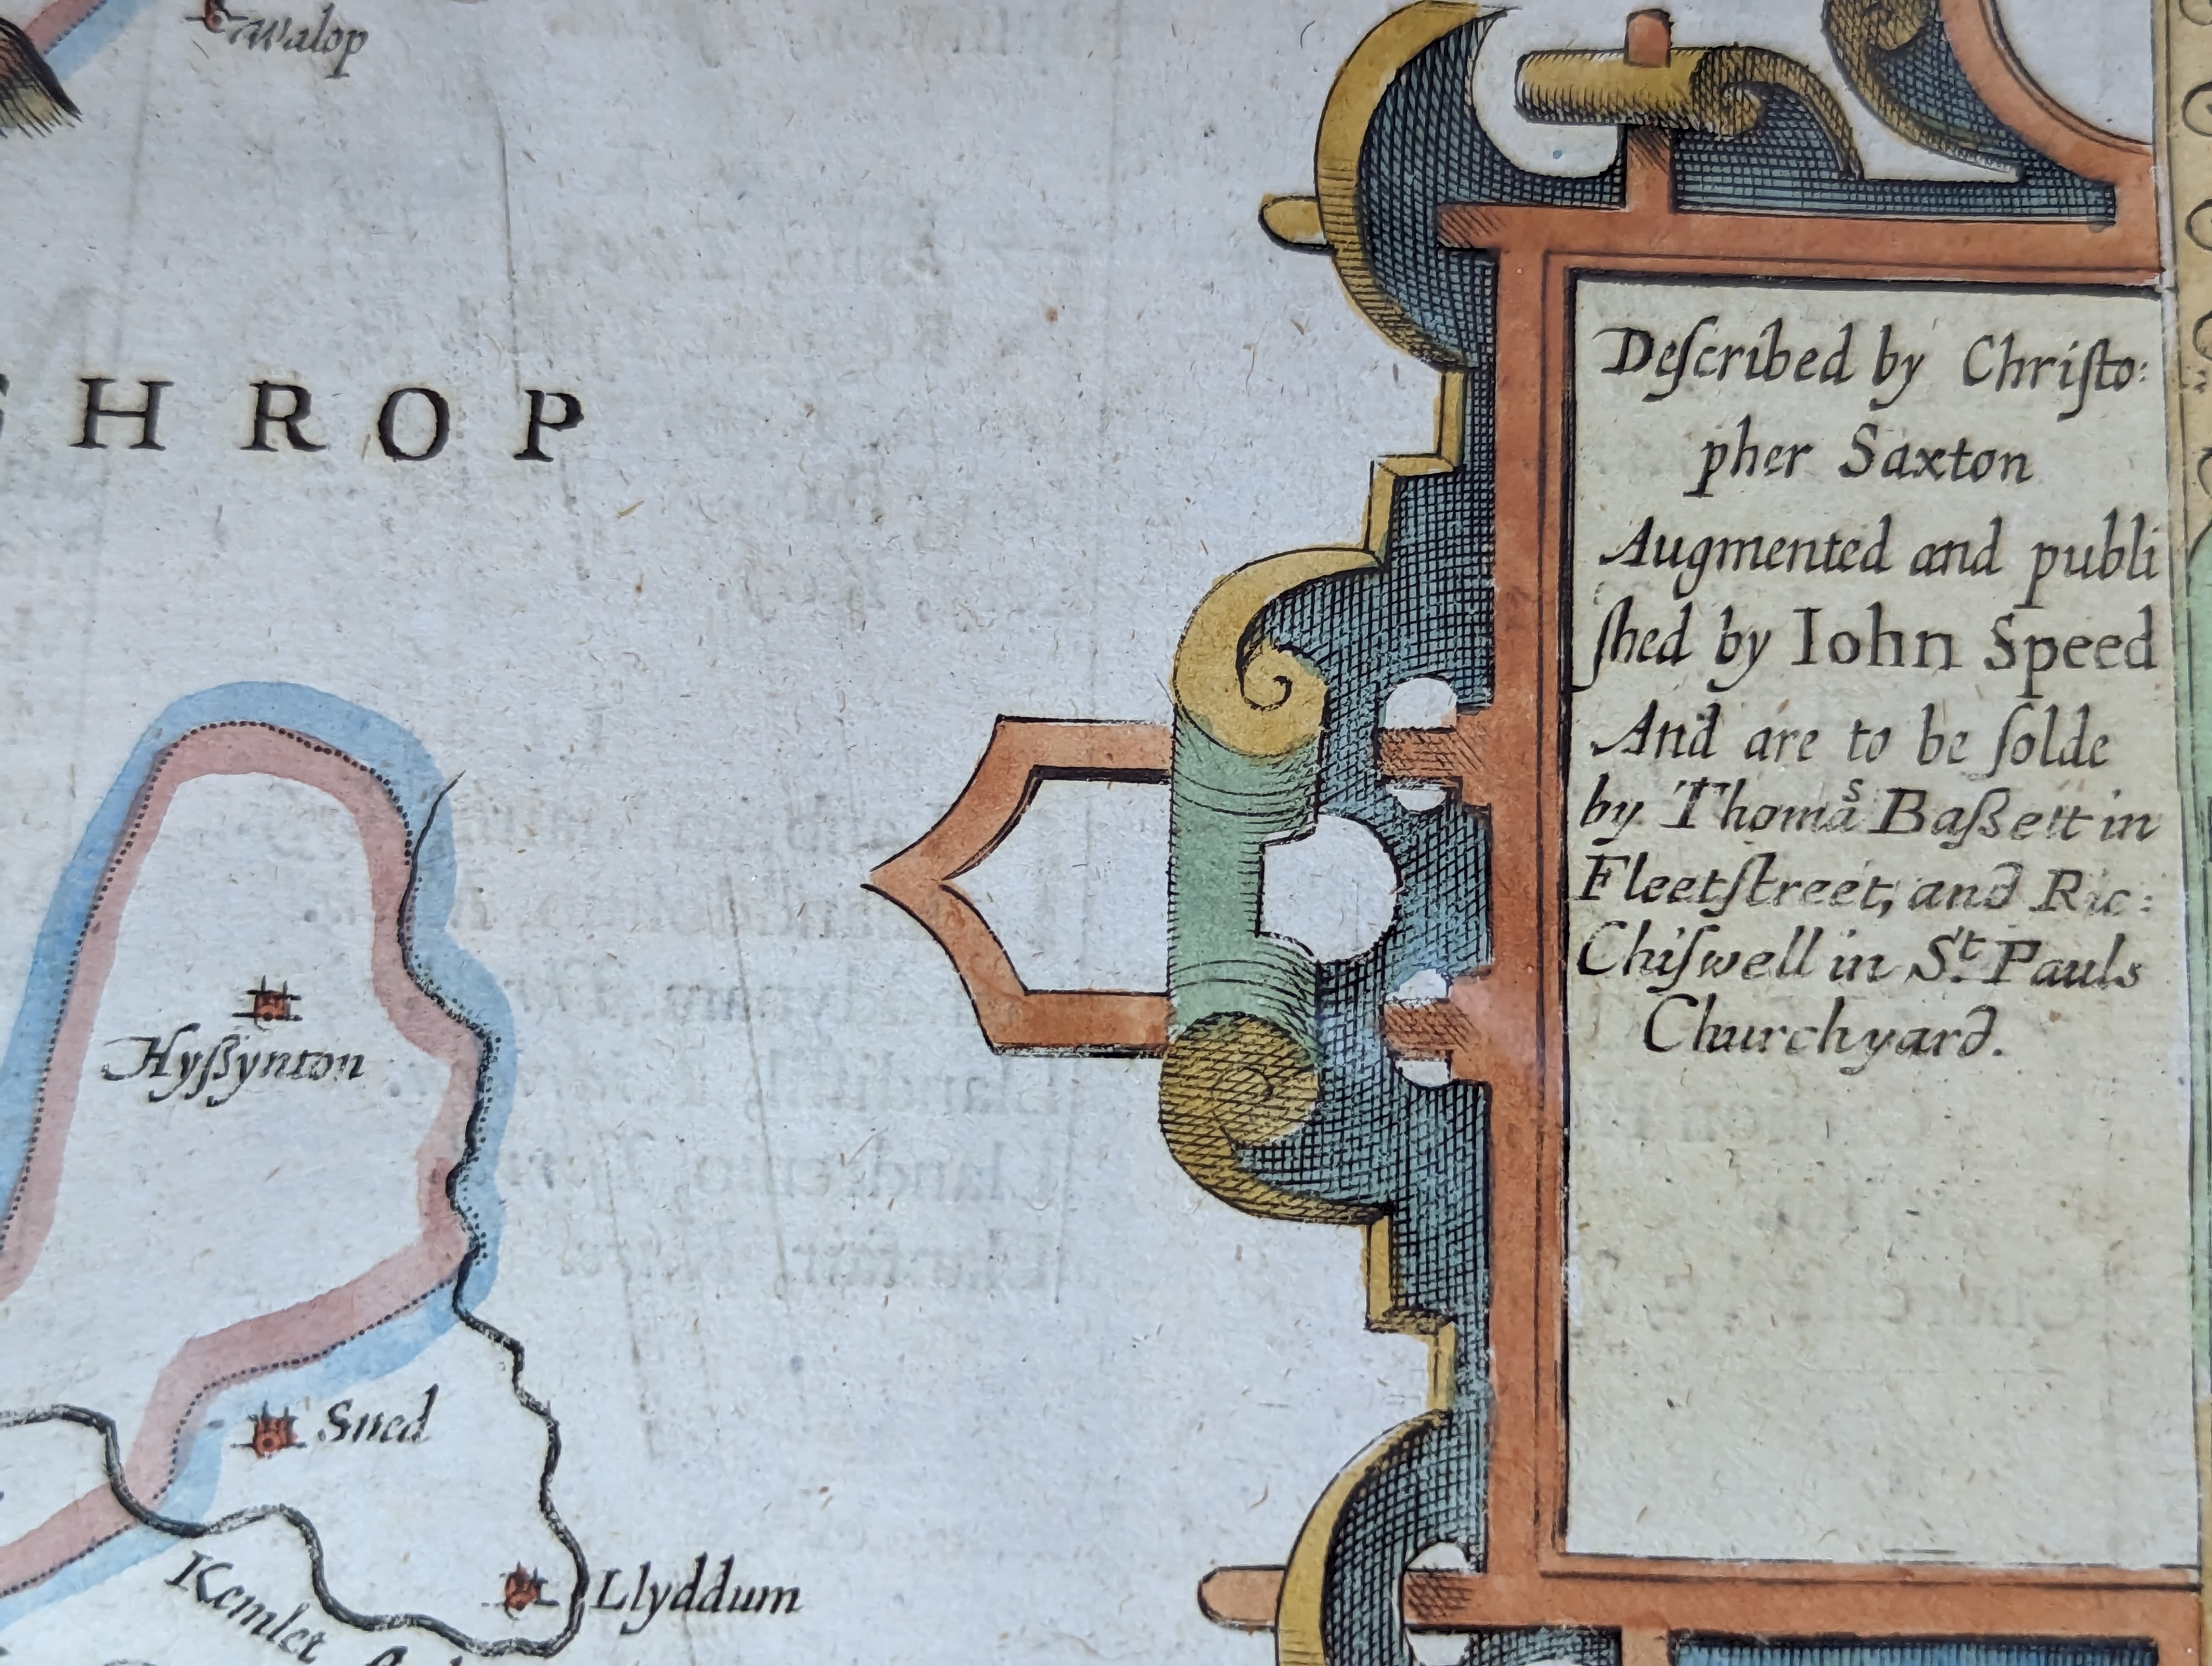 Walop
HROP
Deſcribed by Chriſto:
pher Saxton
Augmented and publi
ſhed by Iohn Speed
And are to be ſolde
by Thomaˢ Baſßett in
Fleetſtreet, and Ric:
Chiſwell in Sᵗ. Pauls
Churchyard.
Hyſßynton
Sned
Llyddum
Kemlet